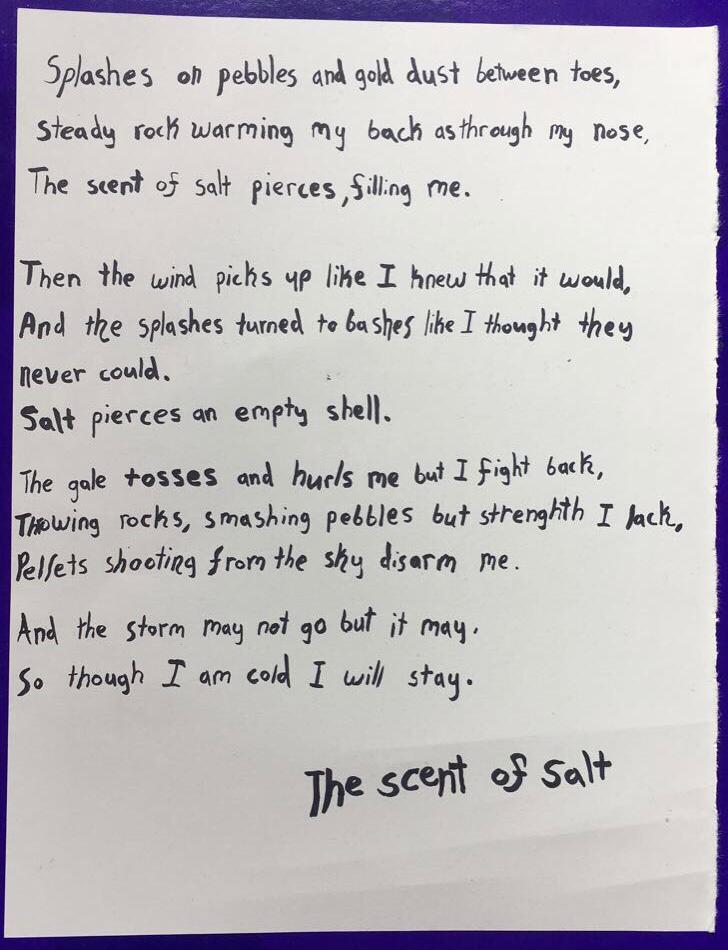 Splashes on pebbles and gold dust between toes,
steady rock warming my back as through my nose,
The scent of salt pierces, filling me.
Then the wind picks up like I knew that it would,
And the splashes turned to bashes like I thought they
never could.
Salt pierces an empty shell.
The gale tosses and hurls me but I fight back,
Throwing rocks, smashing pebbles but strenghth I lack,
Pellets shooting from the sky disarm me.
And the storm may not go but it may.
So though I am cold I will stay.
The scent of salt